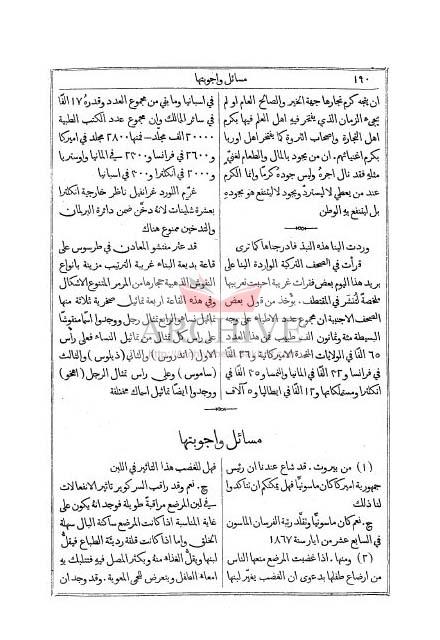 ١٩٠
مسائل واجوبتها
ان يتجه كرم تجارها جهة الخير والصالح العام او لم
يجيء الزمان الذي يفتخر فيه اهل العلم فيها بكرم
اهل التجارة واصحاب الثروة كما يفتخر اهل اوربا
بكرم اغنيائهم. ان من يجود بالمال والطعام لغني
مثله فقد نال اجره وليس جوده كرمًا وانما الكرم
عند من يعطي لا ليسترد ويجود لا لينتفع هو بجوده
بل لينتفع به الوطن
وردت الينا هذه النبذ فادرجناها كما ترى
قرأت في الصحف التركية الواردة الينا على
بريد هذا اليوم بعض فقرات غريبة احببت تعريبها
ملخصة لتنشر في المقتطف. يؤخذ من قول بعض
الصحف الاجنبية ان مجموع عدد الاطباء على وجه
البسيطة مئة وثمانون الف طبيب فمن هذا العدد
٦٥ الفًا في الولايات المتحدة الاميركانية و٢٦ الفًا
في فرنسا و٣٢ الفًا في المانيا والنمسا و٣٥ الفًا في
انكلترا ومستملكاتها و١٢ الفًا في ايطاليا و٥ آلاف
في اسبانيا وما بقي من مجموع العدد وقدره ١٧ الفًا
في سائر الممالك وان مجموع عدد الكتب الطبية
٢٠٠٠٠ الف مجلد – فمنها ٢٨٠٠ مجلد في اميركا
و٢٦٠٠ في فرنسا و٢٣٠٠ في المانيا واوستريا
و٢٠٠٠ في انكلترا و٣٠٠ في اسبانيا
غرّم اللورد غرانفيل ناظر خارجية انكلترا
بعشرة شلينات لانه دخّن ضمن دائرة البرلمان
والتدخين ممنوع هناك
قد عثر مفتشو المعادن في طرسوس على
قاعة بديعة البناء غريبة الترتيب مزينة بانواع
النقوش الذهبية حجارها من المرمر المتنوع الاشكال
وفي هذه القاعة اربعة تماثيل صخرية ثلاثة منها
تماثيل نساء والرابع تمثال رجل ووجدوا اسمًا منقوشًا
على راس كل تمثال من تماثيل النساء فعلى رأس
الاول (اندروس) والثاني (ذيلوس) والثالث
(ساموس) وعلى راس تمثال الرجل (اهخو)
ووجدوا ايضًا تماثيل اسماك مختلفة
ARCHIVE
مسائل واجوبتها
(١) من بيروت. قد شاع عندنا ان رئيس
جمهورية اميركا كان ماسونيًا فهل يمكنكم ان تتاكدوا
لنا ذلك
ج. نعم كان ماسونيًا وتقلد رتبة الفرسان الماسون
في السابع عشر من ايار سنة ١٨٦٧
(٢) ومنها. اذا غضبت المرضع منعها الناس
من ارضاع طفلها بدعوى ان الغضب يغير لبنها
فهل للغضب هذا التاثير في اللبن
ج. نعم وقد راقب السر كوپر تاثير الانفعالات
في لبن المرضع مراقبة طويلة فوجد انه يكون على
غاية المناسبة اذا كانت المرضع ساكنة البال سهلة
الخلق واما اذا كانت قلقة رديئة الطباع فيقل
لبنها ويقل الغذاء منه ويكثر المصل فيه فتنتلبك به
امعاء الطفل ويتعرض للحمى المعوية. وقد وجد ان